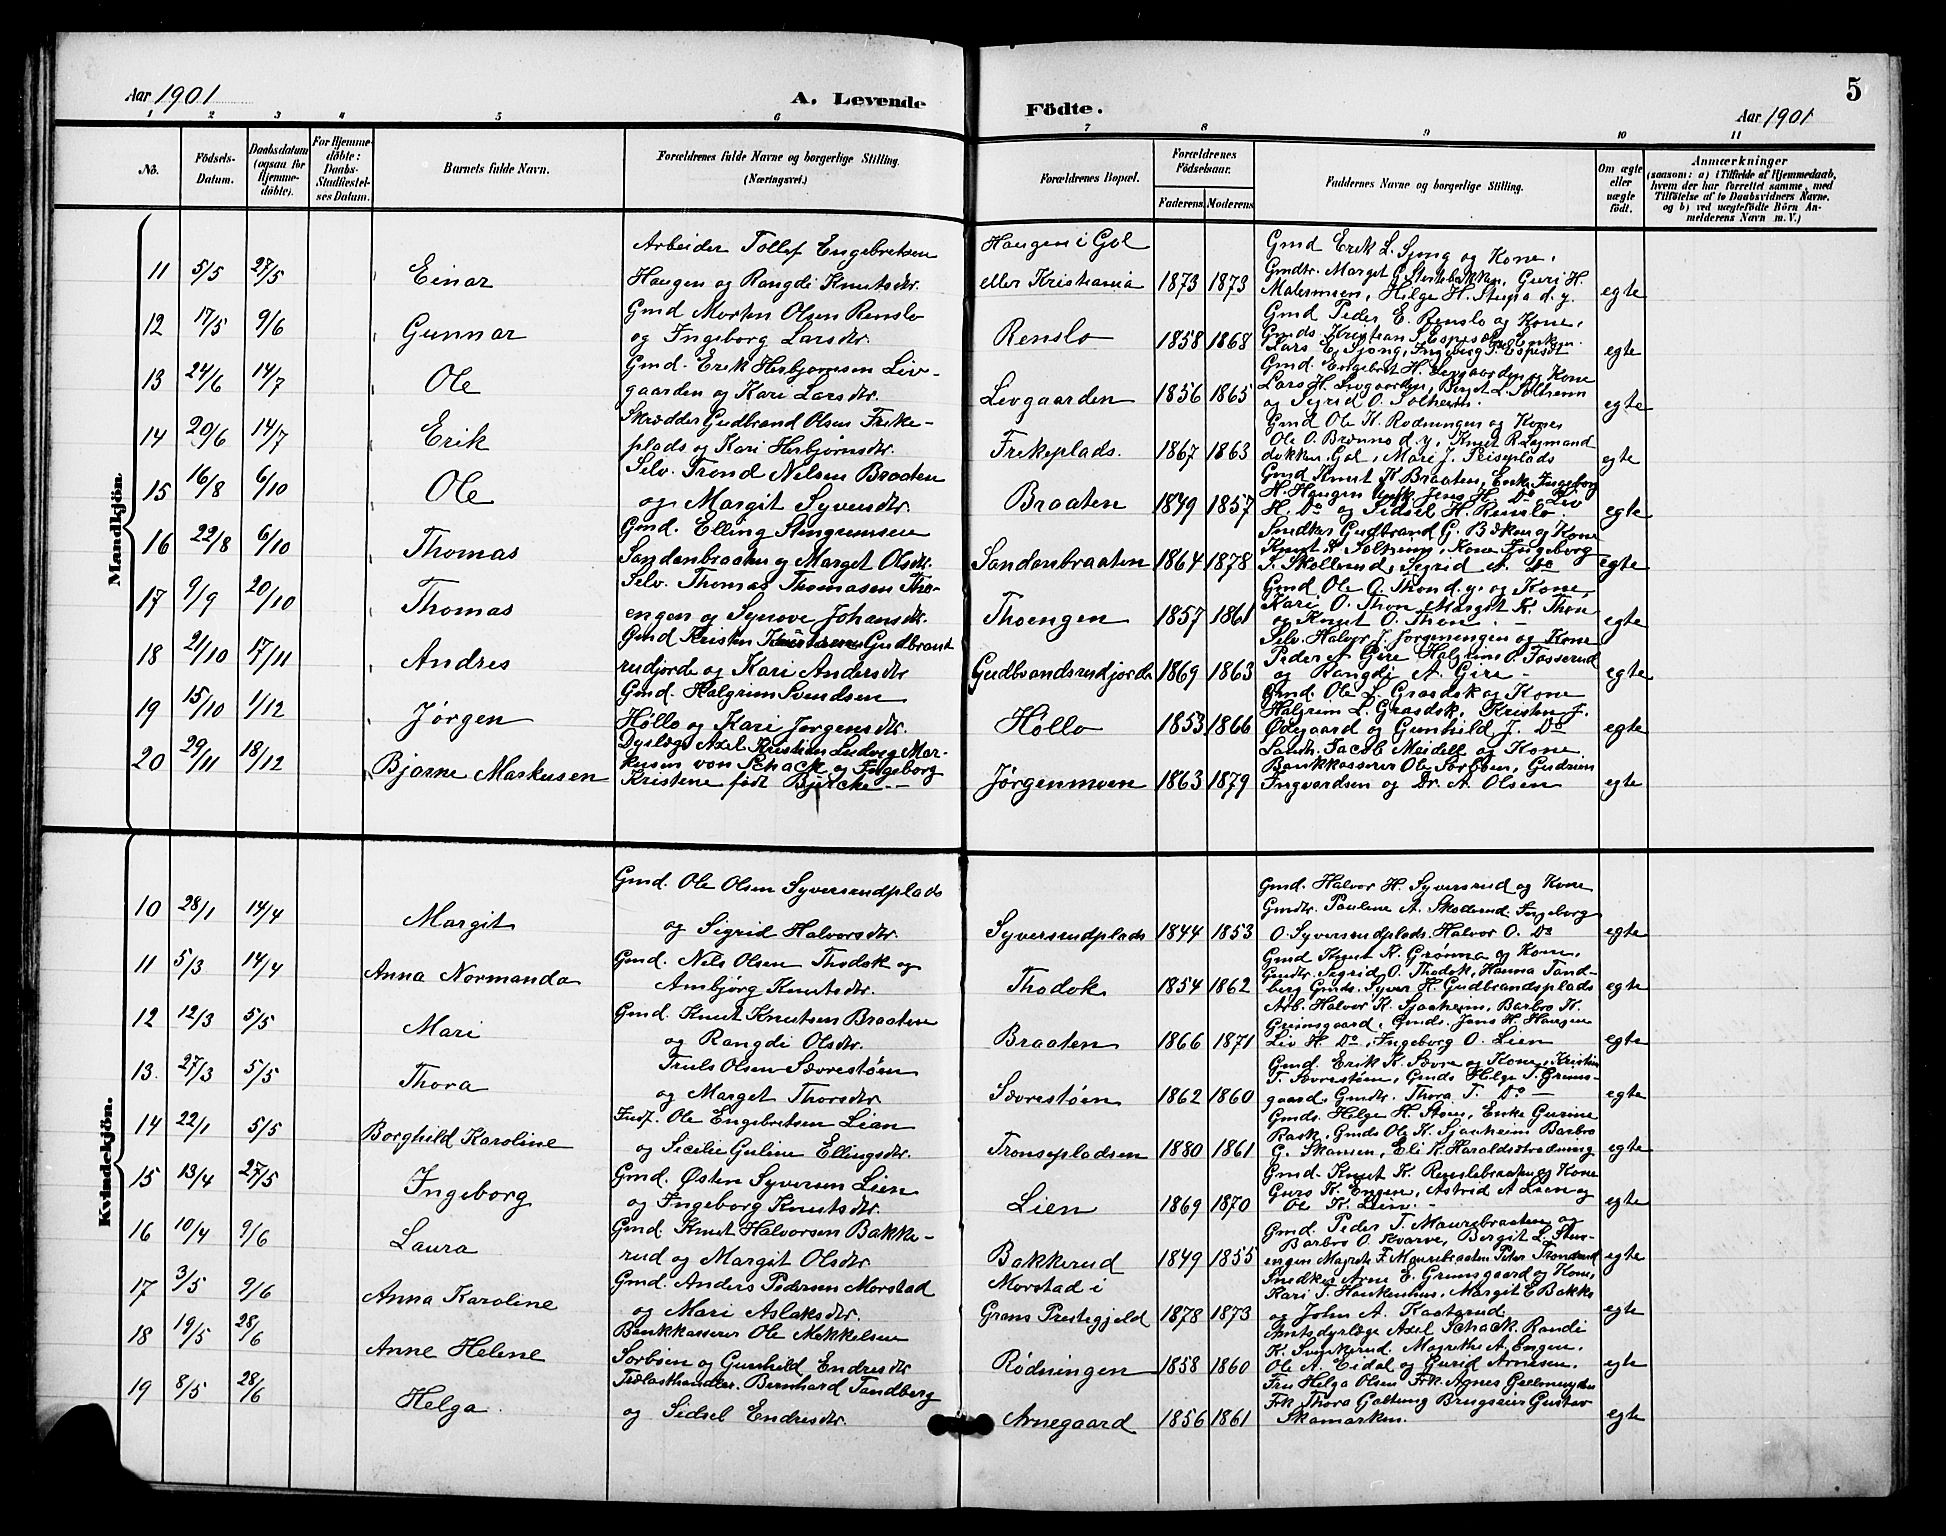 5
Aar 1901
A. Levende Födte.
Aar 1901
1 2 3 4 5 6 7 8 9 10 11
No.
Födsels-Datum.
Daabsdatum (ogsaa for Hjemme-döbte).
For Hjemme-döbte: Daabs-Stadfæstel-ses Datum.
Barnets fulde Navn.
Forældrenes fulde Navne og borgerlige Stilling.
(Næringsvei.)
Forældrenes Bopæl.
Forældrenes Födselsaar.
Faderens Moderens
Faddernes Navne og borgerlige Stilling.
Om ægte eller uægte födt.
Anmærkninger
(saasom: a) i Tilfælde af Hjemmedaab,
hvem der har forrettet samme, med
Tilföielse af to Daabsvidners Navne.
og b) ved uægtefödte Börn An-
melderens Navn m. V.)
Mandkjön.
11 5/5 27/5 Einar
Arbeider Tollef Engebretsen
Haugen og Rangdi Knutsdtr.
Haugen i Gol
eller Kristiania 1873 1873
Gmd Erik L. Sjong og Kone,
Gmdtr. Margit G. Guri H.
Helge H. Stupa d. y. egte
12 17/5 9/6 Gunnar
Gmd Morten Olsen Renslo
og Ingeborg Larsdtr.
Renslo 1858 1868
Gmd Peder E. Renslo og Kone,
Gmds. Kristian Enken
Lars E. Sjong, egte
13 24/6 14/7 Ole
Gmd. Erik Herbjørnsen Liv-
gaarden og Kari Larsdtr.
Levgaarden 1856 1865
Gmd. Engebret H. Levgaarden og Kone
Lars H. Levgaarden, Birget L. Solheim
og Sigrid O. Solheim. egte
14 20/6 14/7 Erik
Skrædder Gudbrand Olsen Freke-
plads og Kari Herbjørnsdtr.
Frekeplads. 1867 1863
Gmd Ole K. Rodningen og Kones
Ole O. Brenno d. y., Knut R.
Gol, Mari J. egte
15 16/8 6/10 Ole
Selv. Trond Nilsen Braaten
og Margit Syversdtr.
Braaten 1849 1857
Gmd Knut K Braaten, Enke Ingeborg
N. Haugen Ungk. Jens H. Do, Liv
H. Do og Sidsel H. Renslo. egte
16 22/8 6/10 Thomas
Gmd. Elling Stengrimsen
Sandenbraaten og Marget Olsdtr.
Sandenbraaten 1864 1878
Snedker Gudbrand G. Bøken og Kone
Knut S. Solheim, Kone Ingeborg
S. Skollerud, Sigrid A. Do egte
17 9/9 20/10 Thomas
Selv. Thomas Thomasen Tho-
engen og Synove Johansdtr.
Thoengen 1857 1861
Gmd Ole O. Thon d. y. og Kone,
Kari O. Thon Margit K. Thon
og Knut O. Thon. egte
18 21/10 17/11 Andres
Gmd Kristen Gudbrand
rudjorde og Kari Andersdtr
Gudbrandsrudjorde 1869 1863
Selv. Halvor J. Jorgenengen og Kone
Peder A Gire Halgrim O. Tasserud
og Rangdi A. Gire – egte
19 15/10 1/12 Jørgen
Gmd. Halgrim Svendsen
Høllo og Kari Jorgensdtr.
Høllo 1853 1866
Gmd. Ole L. Grasdok og Kone
Halgrim L. Grasdok, Kristen J.
Ødegaard og Gunhild J. Do egte
20 29/11 18/12 Bjarne Markusen
Dyrlæge Axel Kristian Ludvig Mar-
kusen von Schack og Ingeborg
Kristene født Bjercke. –
Jørgenmoen 1863 1879
Landh. Jacob Meidell og Kone
Bankkasserer Ole Sorbøen, Gudrun
Ingvardsen og Dr. A. Olsen egte
Kvindekjön.
10 28/1 14/4 Margit
Gmd. Ole Olsen Syversrudplads
og Sigrid Halvorsdtr.
Syversrudplads 1844 1853
Gmd. Halvor H. Syversrud og Kone
Gmdtr. Pauline A. Skollerud. Ingeborg
O. Syversrudplads. Halvor O. Do egte
11 5/3 14/4 Anna Normanda
Gmd. Nels Olsen Thodok og
Ambjørg Knutsdtr.
Thodok 1854 1862
Gmd Knut K. Grønna og Kone,
Gmdtr. Sigrid O. Thodok, Hanna Tand-
berg Gmds. Syver H. Gudbrandsplads egte
12 12/3 5/5 Mari
Gmd. Knut Knutsen Braaten
og Rangdi Olsdtr.
Braaten 1866 1871
Arb. Halvor K. Sjaaheim, Barbro K.
Grimsgaard, Gmds. Jens H. Haugen
Liv H. Do, Ingeborg O. Lien egte
13. 27/3 5/5 Thora
Truls Olsen Sævrestøen
og Marget Thorsdtr.
Sævrestøen 1862 1860
Gmd. Erik K. Sævre og Kone, Kristin
T. Sævrestøen, Gmds Helge T. Grims-
gaard, Gmdtr. Thora T. Do – egte
14 22/1 5/5 Borghild Karoline
Indf. Ole Engebretsen Lian
og Sicilie Guline Ellingsdtr.
Tronsepladsen 1880 1861
Gmds. Helge H. Støen, Enke Gurine
Rask, Gmds Ole K. Sjaaheim Barbro
G. Skansen, Eli K. Haraldsstrædning egte
15 13/4 27/5 Ingeborg
Gmd. Østen Syversen Lien
og Ingeborg Knutsdtr.
Lien 1869 1870
Gmd. Knut K. Renslebraaten og Kone
Guro K. Engen, Astrid A Lien og
Ole K. Lien. – egte
16 10/4 9/6 Laura
Gmd. Knut Halvorsen Bakke-
rud og Margit Olsdtr.
Bakkerud 1849 1855
Gmd. Peder T. Maurebraaten og
Barbro O. Kvarve, Bergit L. Stuv-
engen Magrete F. Maurebraaten Peter Trondrud egte
17 3/5 9/6 Anna Karoline
Gmd. Anders Pedersen Morstad
og Mari Aslaksdtr.
Morstad i
Grans Prestegjeld 1878 1873
Snedker Arne E. Grimsgaard og Kone,
Kari T. Haukenhus, Margit E Bakke
og John A. Kaatsrud egte
18 19/5 28/6 Anne Helene
Bankkasserer Ole Mekkelsen
Sorbøen og Gunhild Endresdtr
Rødningen 1858 1860
Amtsdyrlæge Axel Schack. Randi
K. Svenkerud. Magrethe A. Engen,
Ole A. Eidal og Gurid Arnesen. egte
19 8/5 28/6 Helga.
Trælasthandler. Bernhard Tandberg
og Sidsel Endresdtr.
Arnegaard 1856 1861
Fru Helga Olsen Frk. Agnes Gellmuyden
Frk Thora Galtung Brugseier Gustav
Skamarken. egte